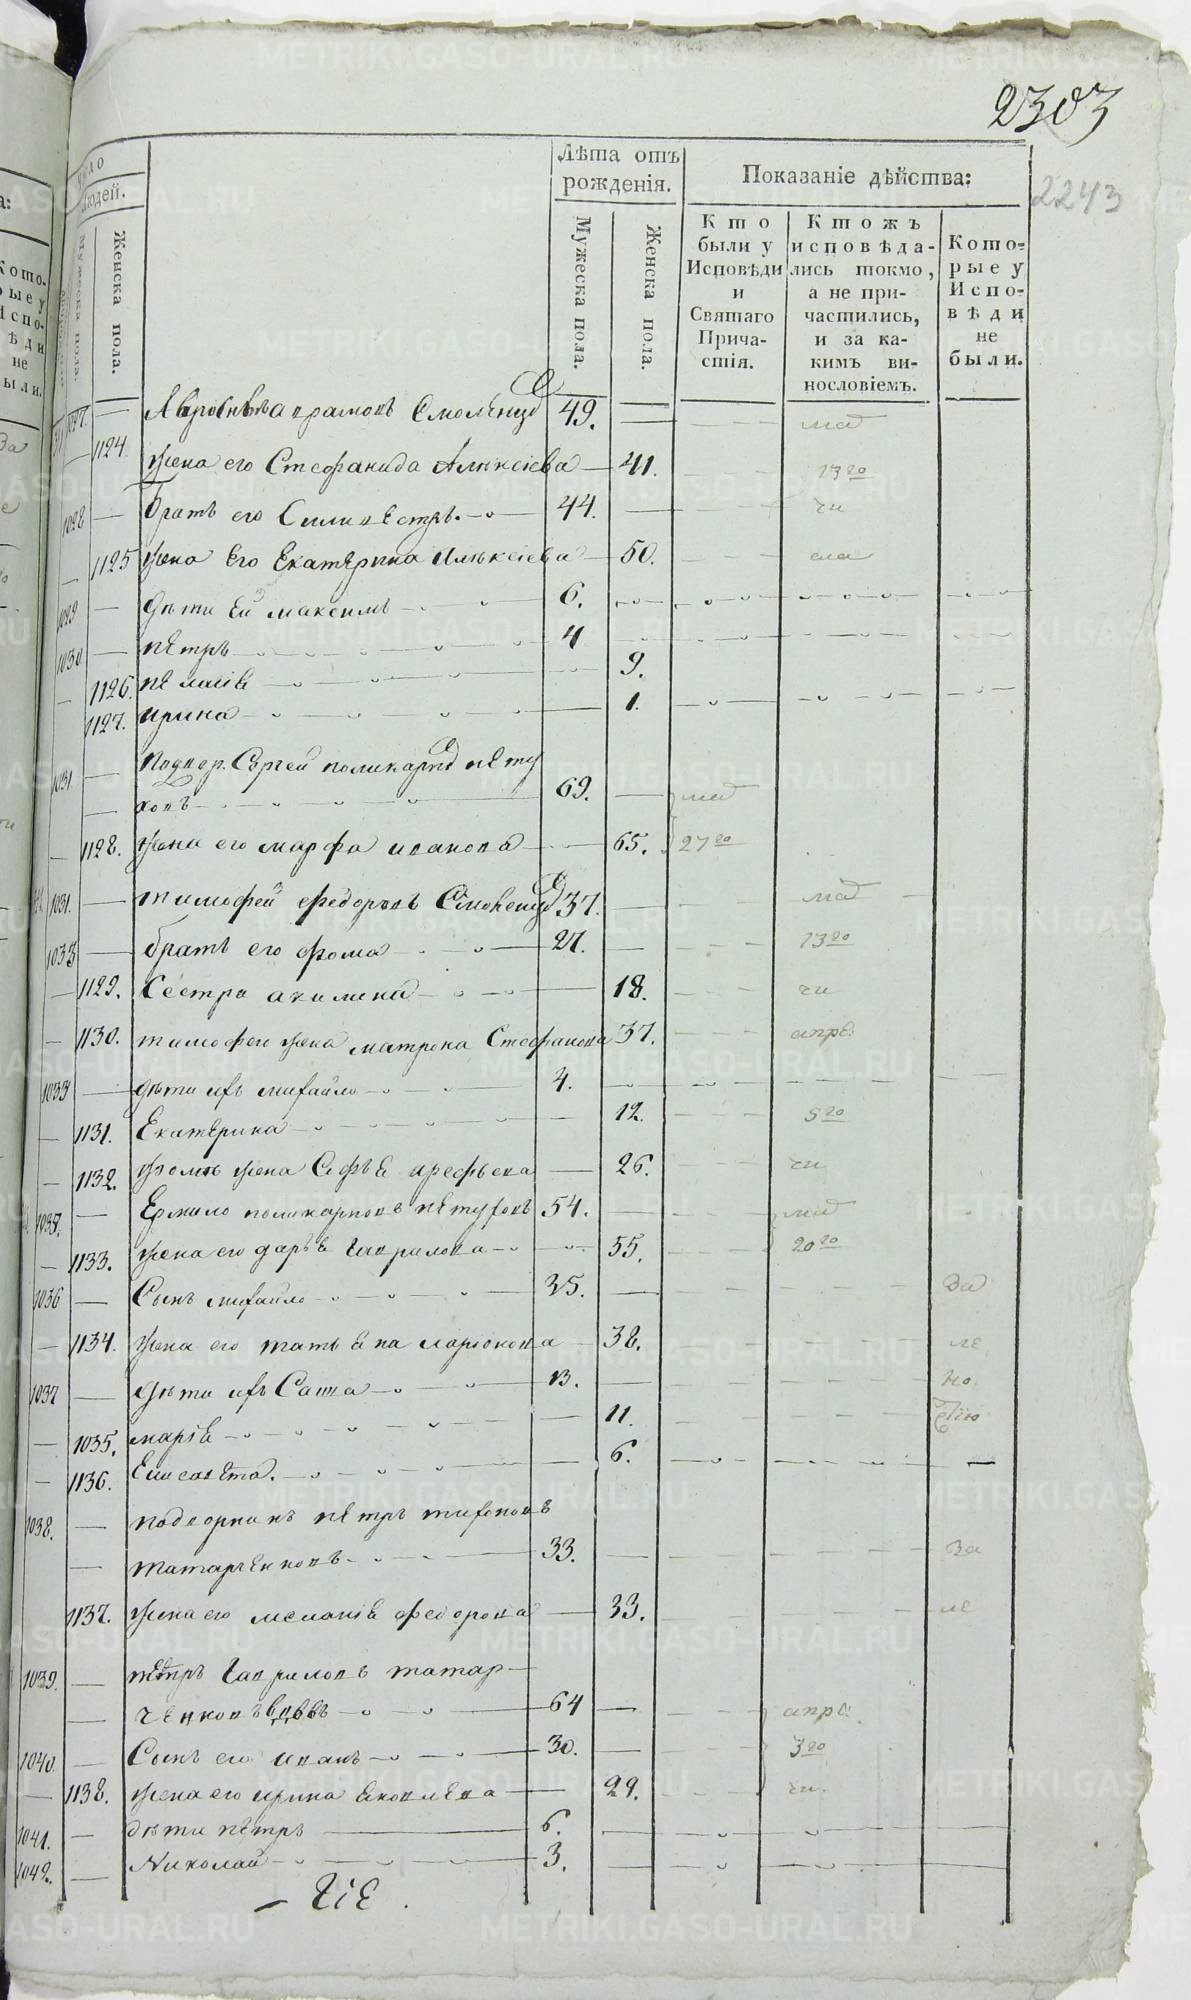 2303
2243
Число Людей.
Мужеска пола.
Женска пола.
Лѣта отъ рожденія.
Мужеска пола.
Женска пола.
Показаніе дѣйства:
Кто были у Исповѣди и Святаго Прича-стія.
Ктожъ исповѣда-лись токмо, а не при-частились, и за ка-кимъ ви-нословіемъ.
Кото-рые у Испо-вѣди не были.
1027. — Смоленцо 49. — маа
— 1124 жена его Стефанида Алексіева — 41. 13 го
1028 — братъ его Силивестръ 44. — чи
— 1125 жена его Екатерина Алексіева — 50. сла
1029 — дѣти ей максимъ 6.
1030. — пѣтръ 4
— 1126. пелагіѣ 9.
1127. ирина — 1.
1031. — Поднор. Сергей поликарпо пѣту
— ховъ 69. — маа
— 1128. жена его марфа иванова 65. 27 го
1031. — тимофей федоровъ Смоленцо 37. — маа
1033 — братъ его фома 27. — 13 го
— 1129. Сестра акилина — 18. чи
— 1130. тимофею жена матрена Стефанова 37. апре:
1033 — дѣти ихъ михайло 4.
— 1131. Екатерина — 12. 5 го
— 1132. фомѣ жена Софьѣ арефьева — 26. чи
1035. — Ермило поликарповъ пѣтуховъ 54. — маа
— 1133. жена его дарьѣ гаврилова 55. 20 го
1036 — Сынъ михайло 35. — За
— 1134. жена его татьѣна ларіонова — 38. ле
1037 — дѣти ихъ Савва 13. — но
— 1035. маріѣ — 11. стію
— 1136. Елисавѣта. — 6.
1038. — подпорникъ пѣтръ тихоновъ
— татарченковъ 33. — За
1137. жена его меланіѣ федорова — 33. ле
1039. — пѣтръ гавриловъ татар—
— ченковъ вдовъ 64 — апре:
1040. — Сынъ его иванъ 30. — 3 го
— 1138. жена его ирина ѣковлева — 29. чи.
1041. — дѣти пѣтръ 6.
1042. — Николай 3.